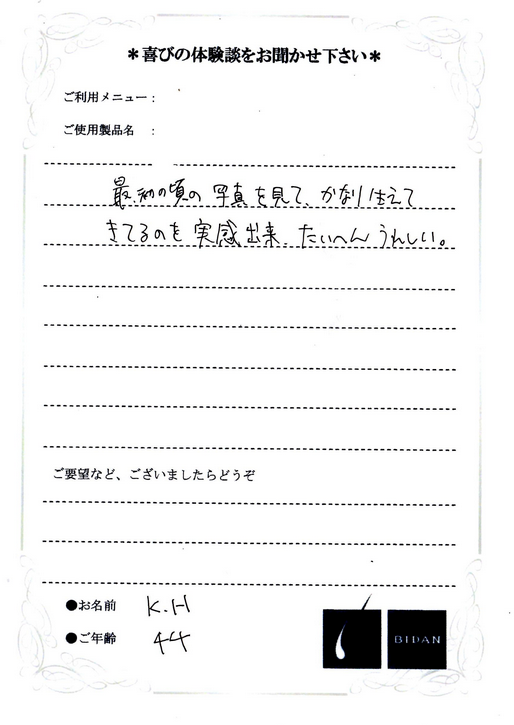 ＊喜びの体験談をお聞かせ下さい＊
ご利用メニュー：
ご使用製品名　：
最初の頃の写真を見て、かなり生えて
きてるのを実感出来 たいへんうれしい。
ご要望など、ございましたらどうぞ
●お名前　K.H
●ご年齢　44
BIDAN